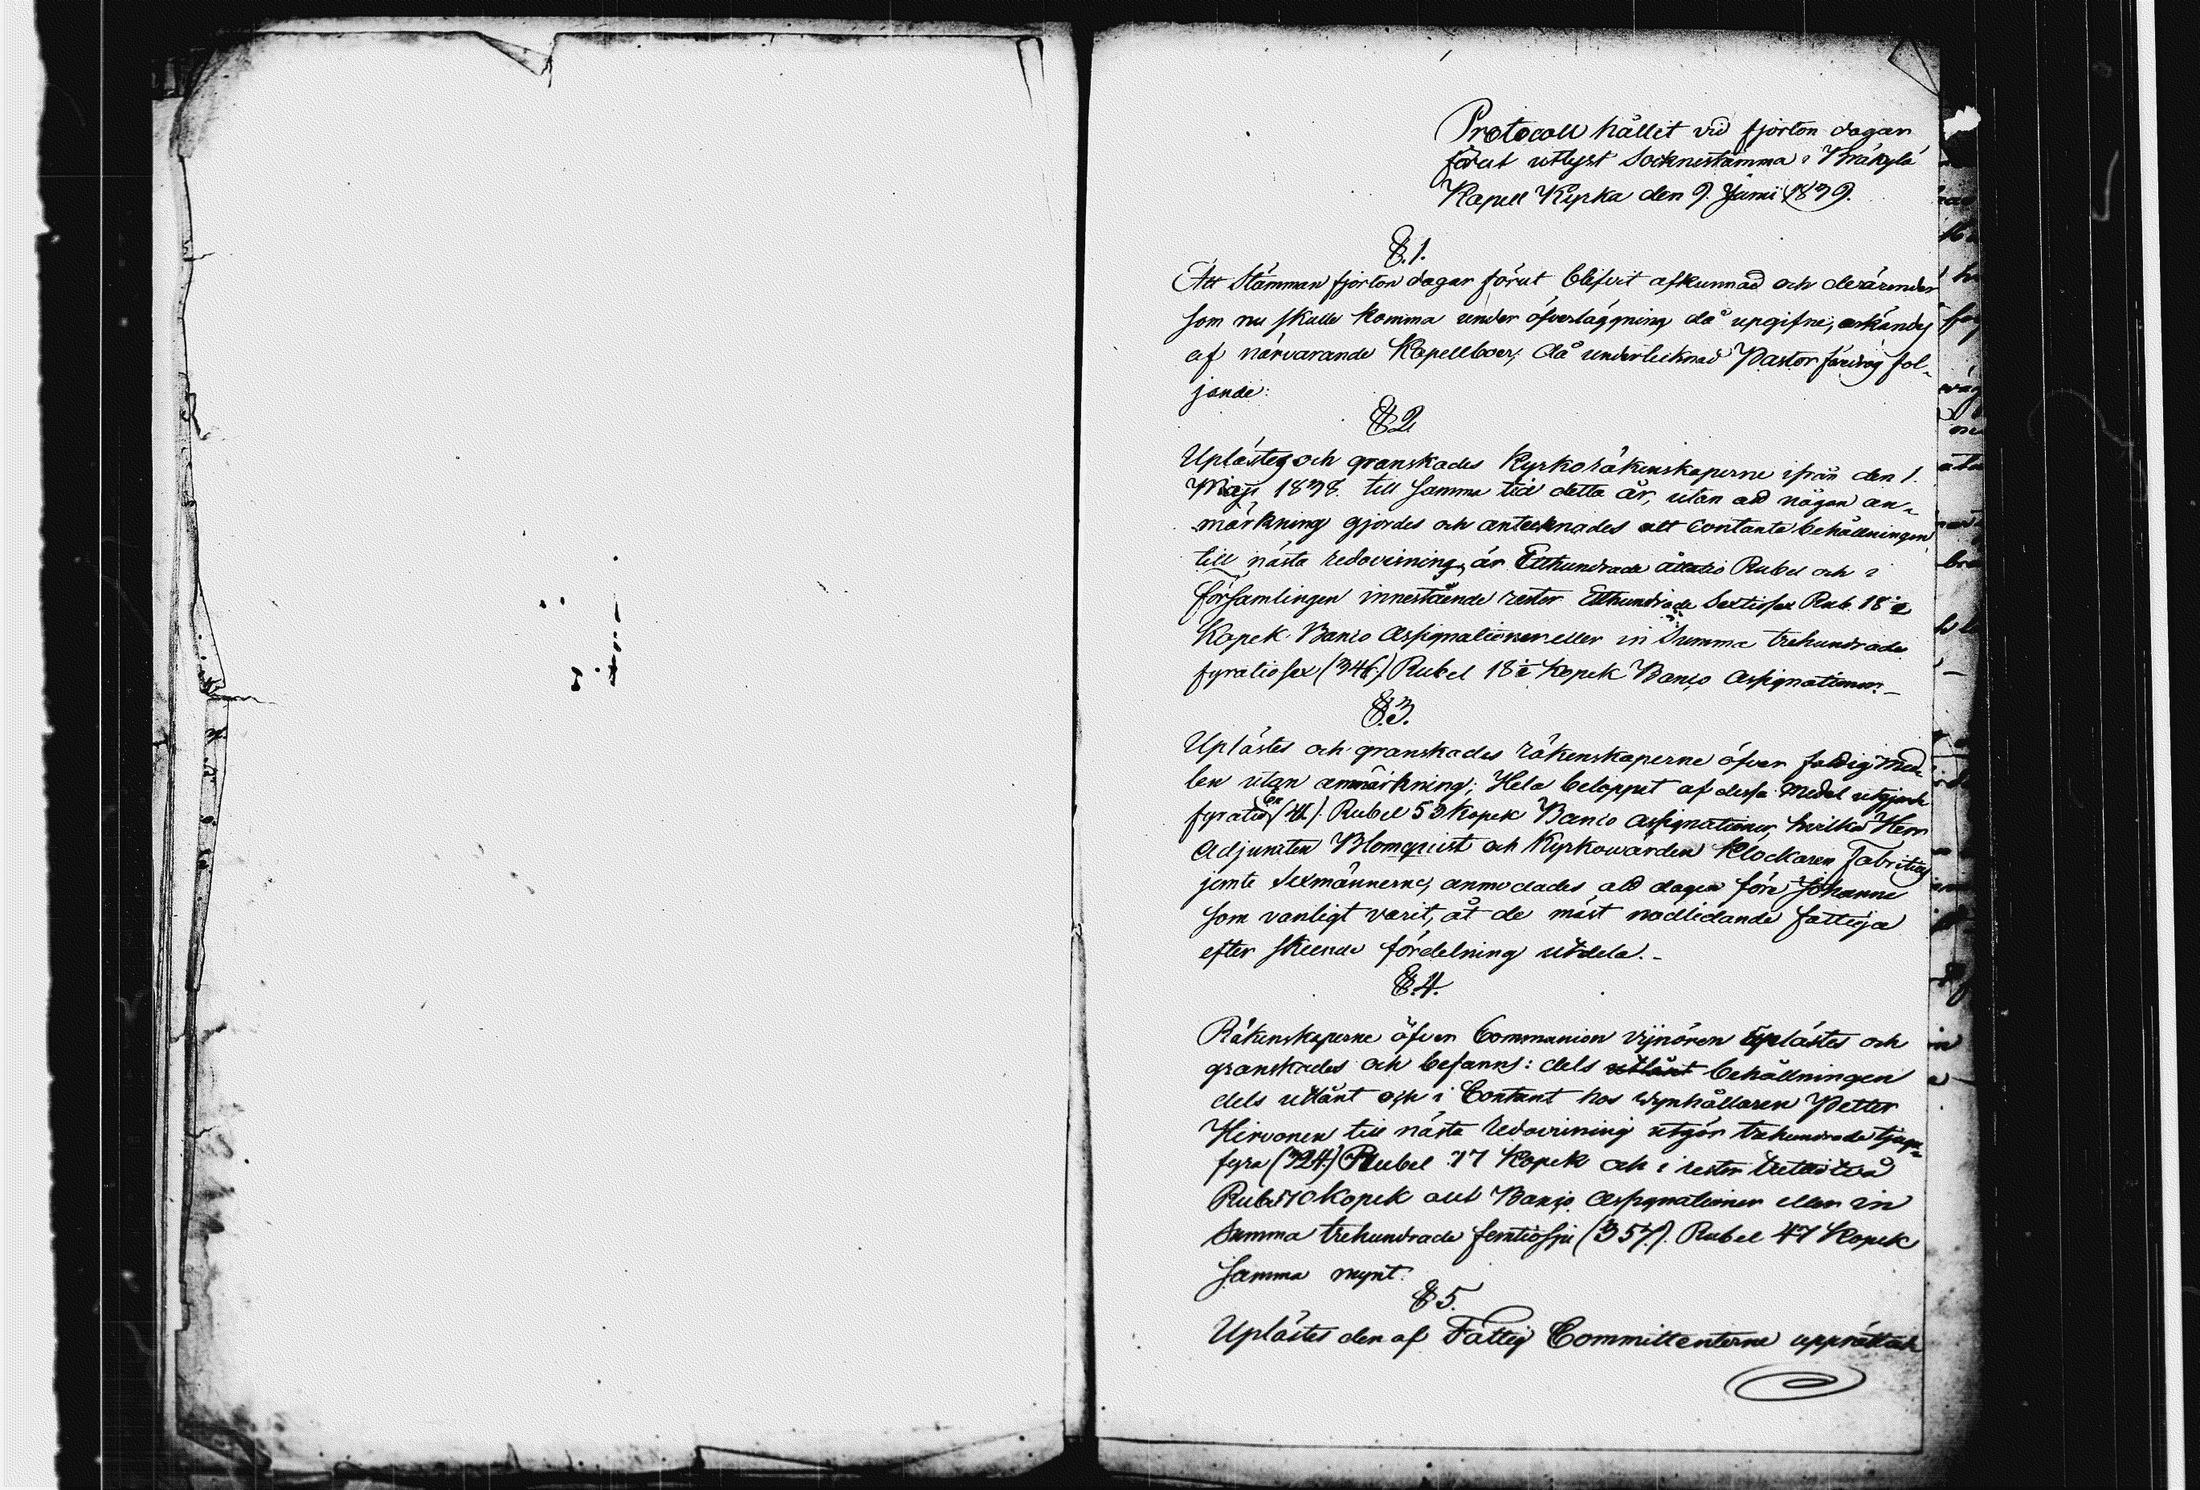 Protocoll hållit vid fjorton dagar
förut utlyst Socknestämma i Bräkylä
Kapell Kyrka den 9. Junii 1839.
§.1.
Att Stämman fjorton dagar förut blifvit afkunnad och de ärender
som nu skulle komma under öfverläggning då upgifne, erkändes
af närvarande Kapellboer, då undertecknad Pastor föredrog föl-
jande:
§ 2
Uplästes och granskades Kyrkoräkenskaperne ifrån den 1.
Maji 1838. till samma tid detta år, utan att någon an-
märkning gjordes och antecknades att contanta behållningen
till nästa redovisning är Etthundrade åttatio Rubel och i
församlingen innestående rester Etthundrade Sextiosex Rub. 18 4/7
Kopek Banco Assignationer eller in Summa trehundrade
fyratiosex (346.) Rubel 18 4/7 Kopek Banco Assignationer.
§.3.
Uplästes och granskades räkenskaperne öfver fattig med-
len utan anmärkning; Hela beloppet af dessa medel utgjorde
fyratio en (41.) Rubel 53 Kopek Banco Assignationer, hvilka Herr
Adjuncten Blomqvist och Kyrkowärden Klockaren Fabritius
jemte Sexmännerne, anmodades att dagen före Johanne
som vanligt varit, åt de mäst nödlidande fattiga
efter skeende fördelning utdela.
§.4.
Räkenskaperne öfver Communion vijnören uplästes och
granskades och befanns: dels utlånt behållningen
dels utlånt och i Contant hos wijnhållaren Petter
Hirvonen till nästa redovisning utgör trehundrade tjugu-
fyra (324.) Rubel 77 Kopek och i rester trettiotvå
Rubel 70 Kopek allt Banco Assignationer eller in
Summa trehundrade femtiosju (357.) Rubel 47 Kopek
samma mynt.
§ 5.
Uplästes den af Fattig Committenterne upprättade